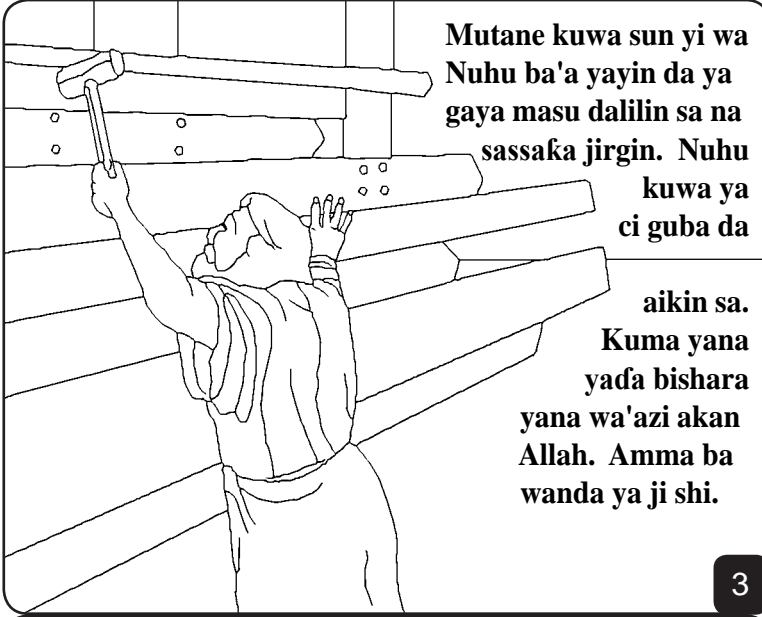 Mutane kuwa sun yi wa
Nuhu ba'a yayin da ya
gaya masu dalilin sa na
sassaƙa jirgin. Nuhu
kuwa ya
ci guba da
aikin sa.
Kuma yana
yaɗa bishara
yana wa'azi akan
Allah. Amma ba
wanda ya ji shi.
3